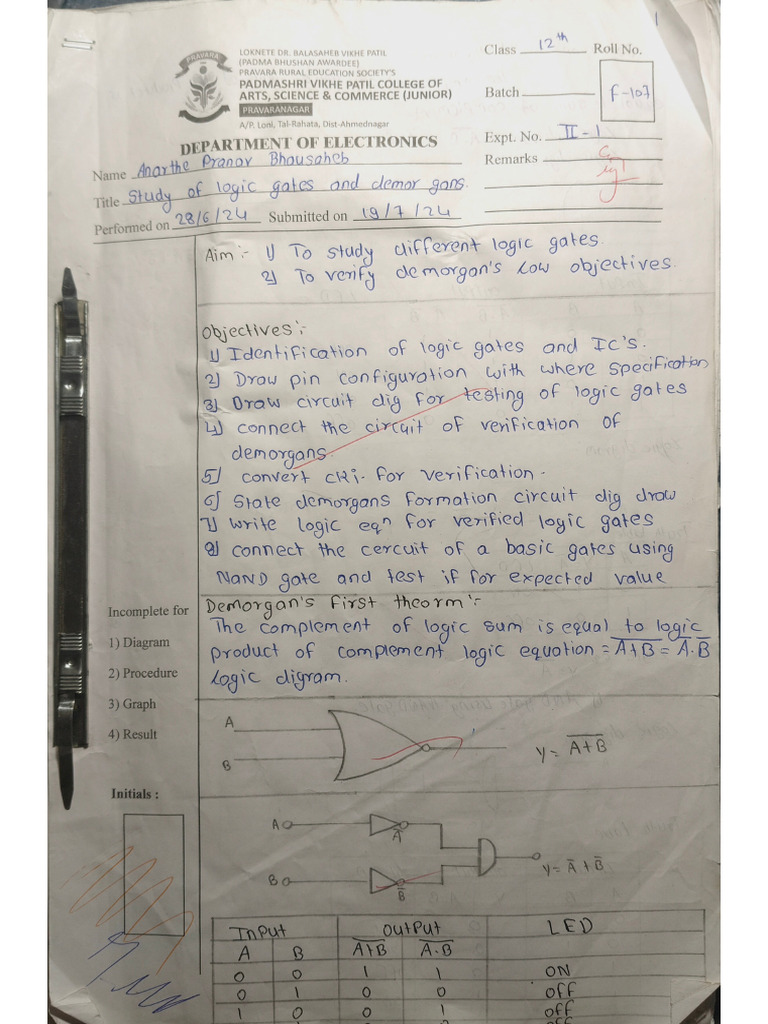 1
LOKNETE DR. BALASAHEB VIKHE PATIL
(PADMA BHUSHAN AWARDEE)
PRAVARA RURAL EDUCATION SOCIETY'S
PADMASHRI VIKHE PATIL COLLEGE OF
ARTS, SCIENCE & COMMERCE (JUNIOR)
PRAVARANAGAR
A/P. Loni, Tal-Rahata, Dist-Ahmednagar
PRAVARA
DEPARTMENT OF ELECTRONICS
Class 12th Roll No.
Batch F-107
Expt. No. II-1
Remarks
Name Anarthe Pranav Bhausaheb
Title Study of logic gates and demor gans.
Performed on 28/6/24 Submitted on 19/7/24
Aim:- 1) To study different logic gates.
2) To verify demorgan's Low objectives.
Objectives:-
1) Identification of logic gates and IC's.
2) Draw pin configuration with where specification
3) Draw circuit dig for testing of logic gates
4) connect the circuit of verification of
demorgans.
5) convert cki. for verification.
6) State demorgans formation circuit dig draw
7) write logic eqn for verified logic gates
8) connect the cercuit of a basic gates using
NAND gate and test if for expected value
Incomplete for
1) Diagram
2) Procedure
3) Graph
4) Result
Initials :
Demorgan's first theorm:-
The complement of logic sum is equal to logic
product of complement logic equotion = A̅+̅B̅ = A̅.B̅
Logic digram.
A
B
Y = A̅+̅B̅
A
A̅
B
B̅
Y = A̅ + B̅
Input Output LED
A B A̅+̅B̅ A̅.B̅
0 0 1 1 ON
0 1 0 0 Off
1 0 0 1 Off